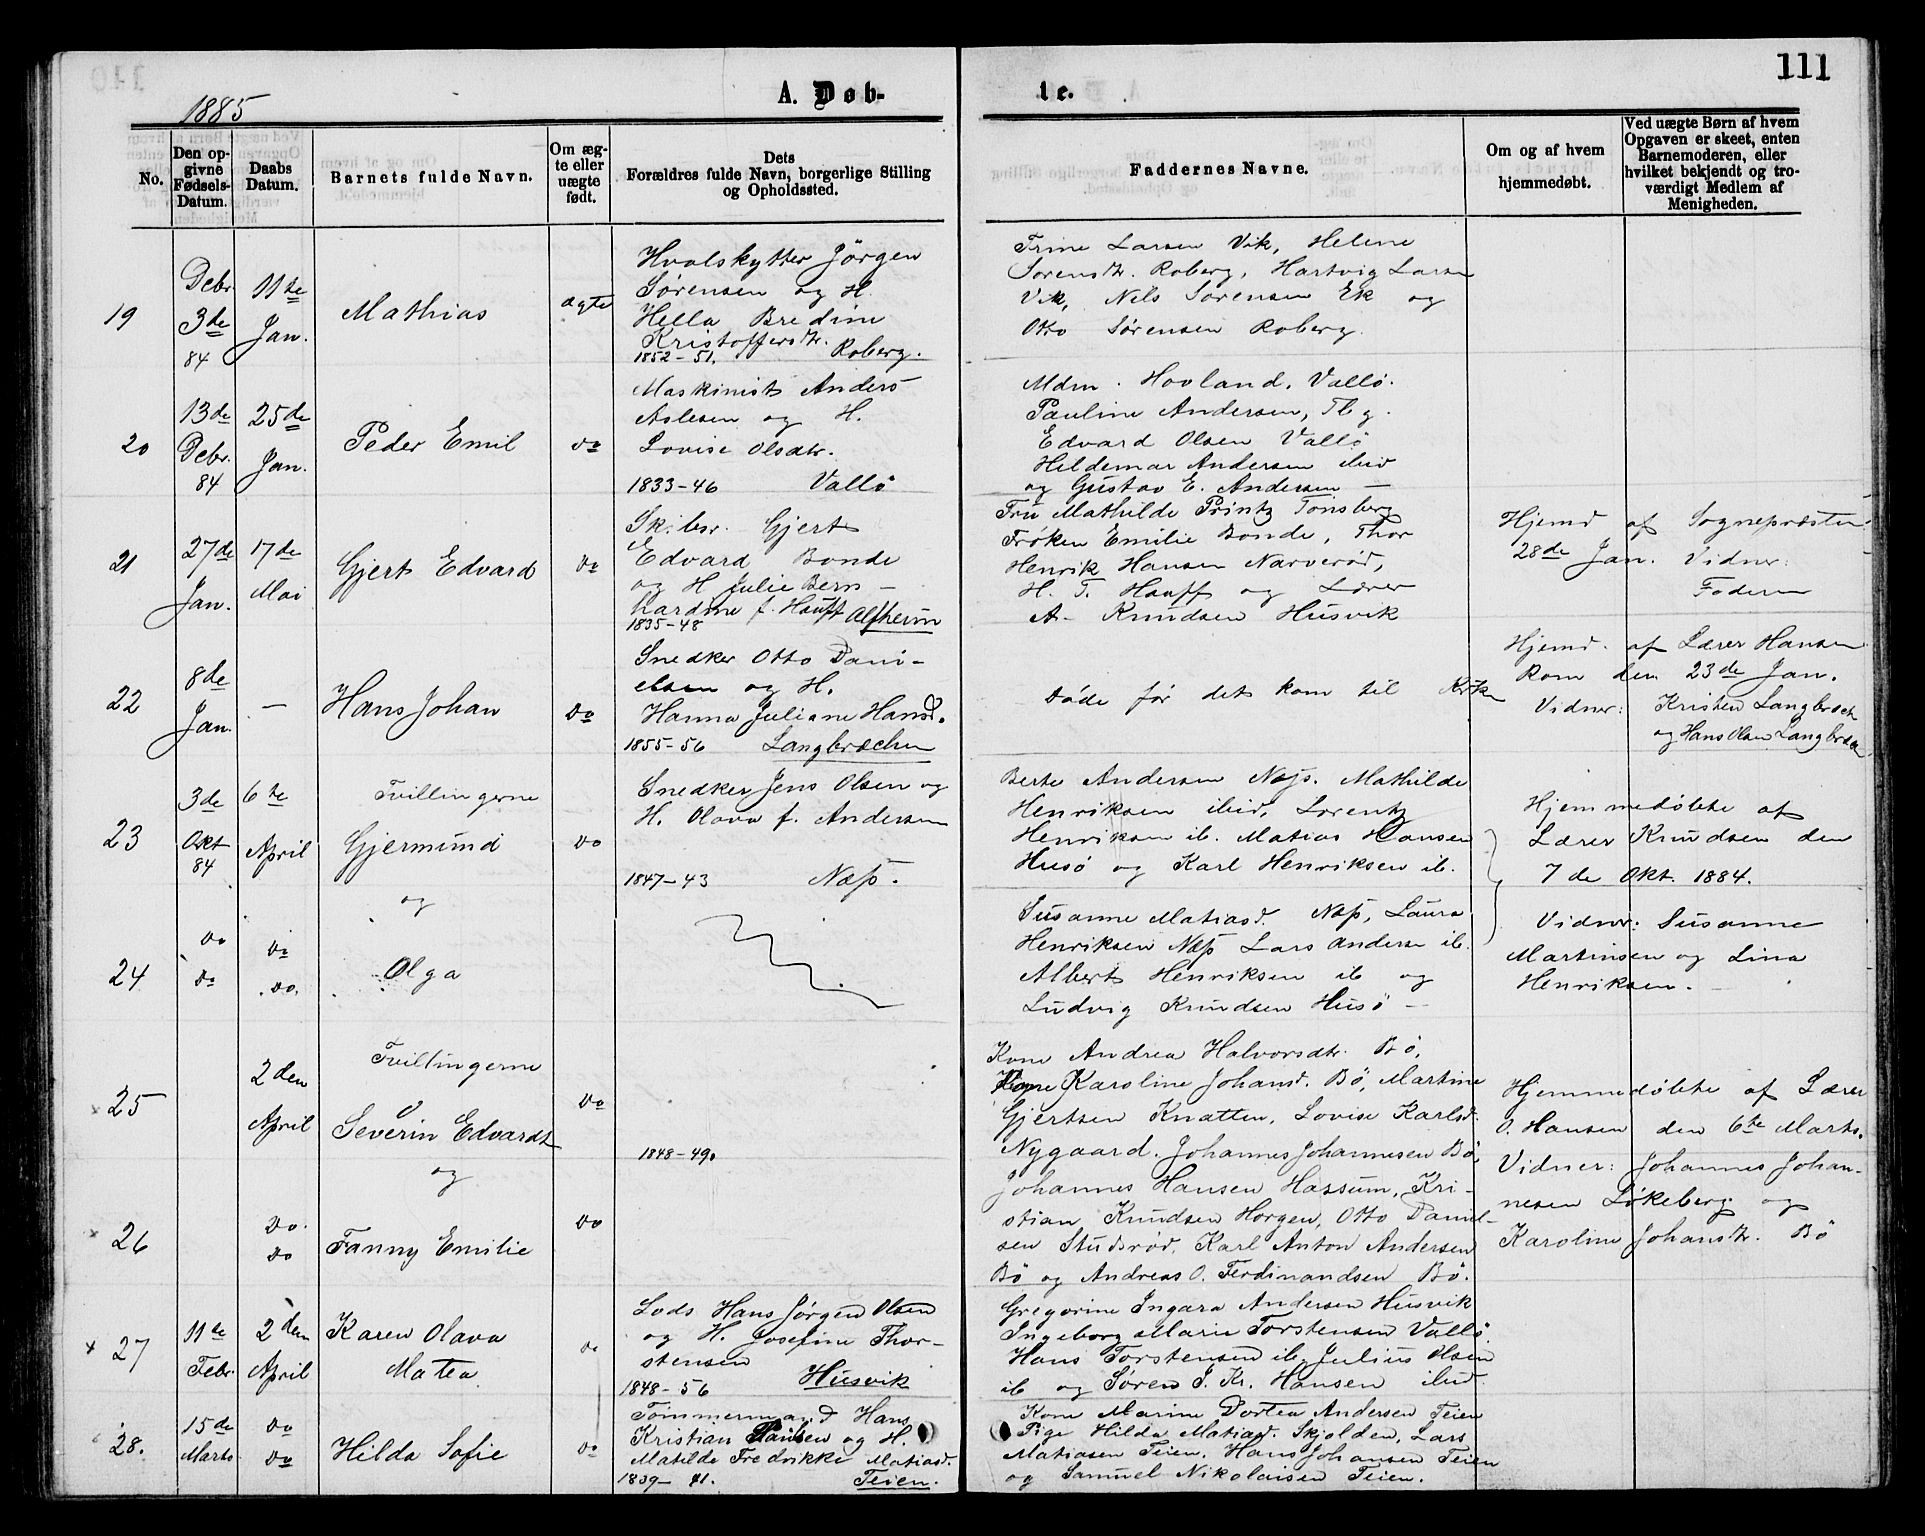 111
1885
A. Døb-
te.
No.
Den op-
givne
Fødsels-
Datum.
Daabs
Datum.
Barnets fulde Navn.
Om æg-
te eller
uægte
født.
Dets
Forældres fulde Navn, borgerlige Stilling
og Opholdssted.
Faddernes Navne.
Om og af hvem
hjemmedøbt.
Ved uægte Børn af hvem
Opgaven er skeet, enten
Barnemoderen, eller
hvilket bekjendt og tro-
værdigt Medlem af
Menigheden.
19
Debr.
3de
84
11te
Jan.
Mathias
ægte
Hvalskytter Jörgen
Sørensen og H.
Hella Bredine
Kristoffersdtr.
1852-51. Roberg.
Trine Larsen Vik, Helene
Sorensdtr. Roberg, Hartvig Larsen
Vik, Nils Sørensen Ek og
Otto Sørensen Roberg.
20
13de
Debr.
84
25de
Jan.
Peder Emil
do
Maskinist Anders
Aslesen og H.
Lovise Olsdtr.
1833-46 Vallö
Mdm. Hovland, Vallö.
Pauline Andersen, Tbg.
Edvard Olsen Vallö
Hildemar Andersen ibid
og Gustav E. Andersen —
21
27de
Jan.
17de
Mai
Gjert Edvard
do
Sk.bsr. Gjert
Edvard Bonde
og H Julie Bern-
hardine f. Hauff Alfheim
1835-48
Fru Mathilde Printz Tönsberg
Frøken Emilie Bonde, Thor
Henrik Hansen Narverød,
H. T. Hauff og Lærer
A. Knudsen Husvik
Hjemd af Sognepræsten
28de Jan. Vidner:
Faderen
22
8de
Jan.
—
Hans Johan
do
Snedker Otto Dani-
elsen og H.
Hanna Juliane Hansd.
1855-56 Langbrækken
Döde før det kom til Kirke
Hjemd. af Lærer Hansen
Rom den 23de Jan.
Vidner: Kristen Langbræk
og Hans Olsen Langbræk
23
3de
Okt
84
6te
April
Tvillingerne
Gjermund
og
do
Snedker Jens Olsen og
H. Olava f. Andersen
1847-43 Næss.
Berte Andersen Næss. Mathilde
Henriksen ibid, Lorentz
Henriksen ib. Matias Hansen
Husö og Karl Henriksen ib.
Hjemmedöbte af
Lærer Knudsen den
7de Okt. 1884.
Vidner: Susanne
Martinsen og Lina
Henriksen.
24
do
do
do
do.
Olga
Susanne Matiasd. Næss, Laura
Henriksen Næss Lars Anders ib.
Albert Henriksen ib og
Ludvig Knudsen Husö —
25
2den
April
Tvillingerne
Severin Edvardt
og
do
1848-49.
Kone Andrea Halvorsdtr. Bö,
Karoline Johansd. Bö, Martine
Gjertsen Knatten, Lovise Karlsd.
Nygaard. Johannes Johannesen Bö,
Johannes Hansen Hassum, Kri-
stian Knudsen Horgen, Otto Daniel-
sen Studsrød, Karl Anton Andersen
Bö og Andreas O. Ferdinandsen Bö.
Hjemmedöbte af Lærer
O. Hansen den 6te Marts.
Vidner: Johannes Johan-
nesen Lökeberg og
Karoline Johansdtr. Bö
26
do.
do
Fanny Emilie
do
27
11te
Febr.
2den
April
Karen Olava
Matea
do
Lods Hans Jørgen Olsen
og H. Josefine Thor-
stensen
1848-56 Husvik
Gregorine Ingara Andersen Husvik
Ingeborg Marie Torstensen Vallö.
Hans Torstensen ib, Julius Olsen
ib og Søren J. Kr. Hansen ibid
28.
15de
Marts
do
do
Hilda Sofie
do
Tømmermand Hans
Kristian Paulsen og H.
Matilde Fredrikke Matiasd.
1839-41. Teien.
Kone Marine Dortea Andersen Teien
Pige Hilda Matiasd. Skjolden, Lars
Matiasen Teien, Hans Johansen Teien
og Samuel Nikolaisen Teien.